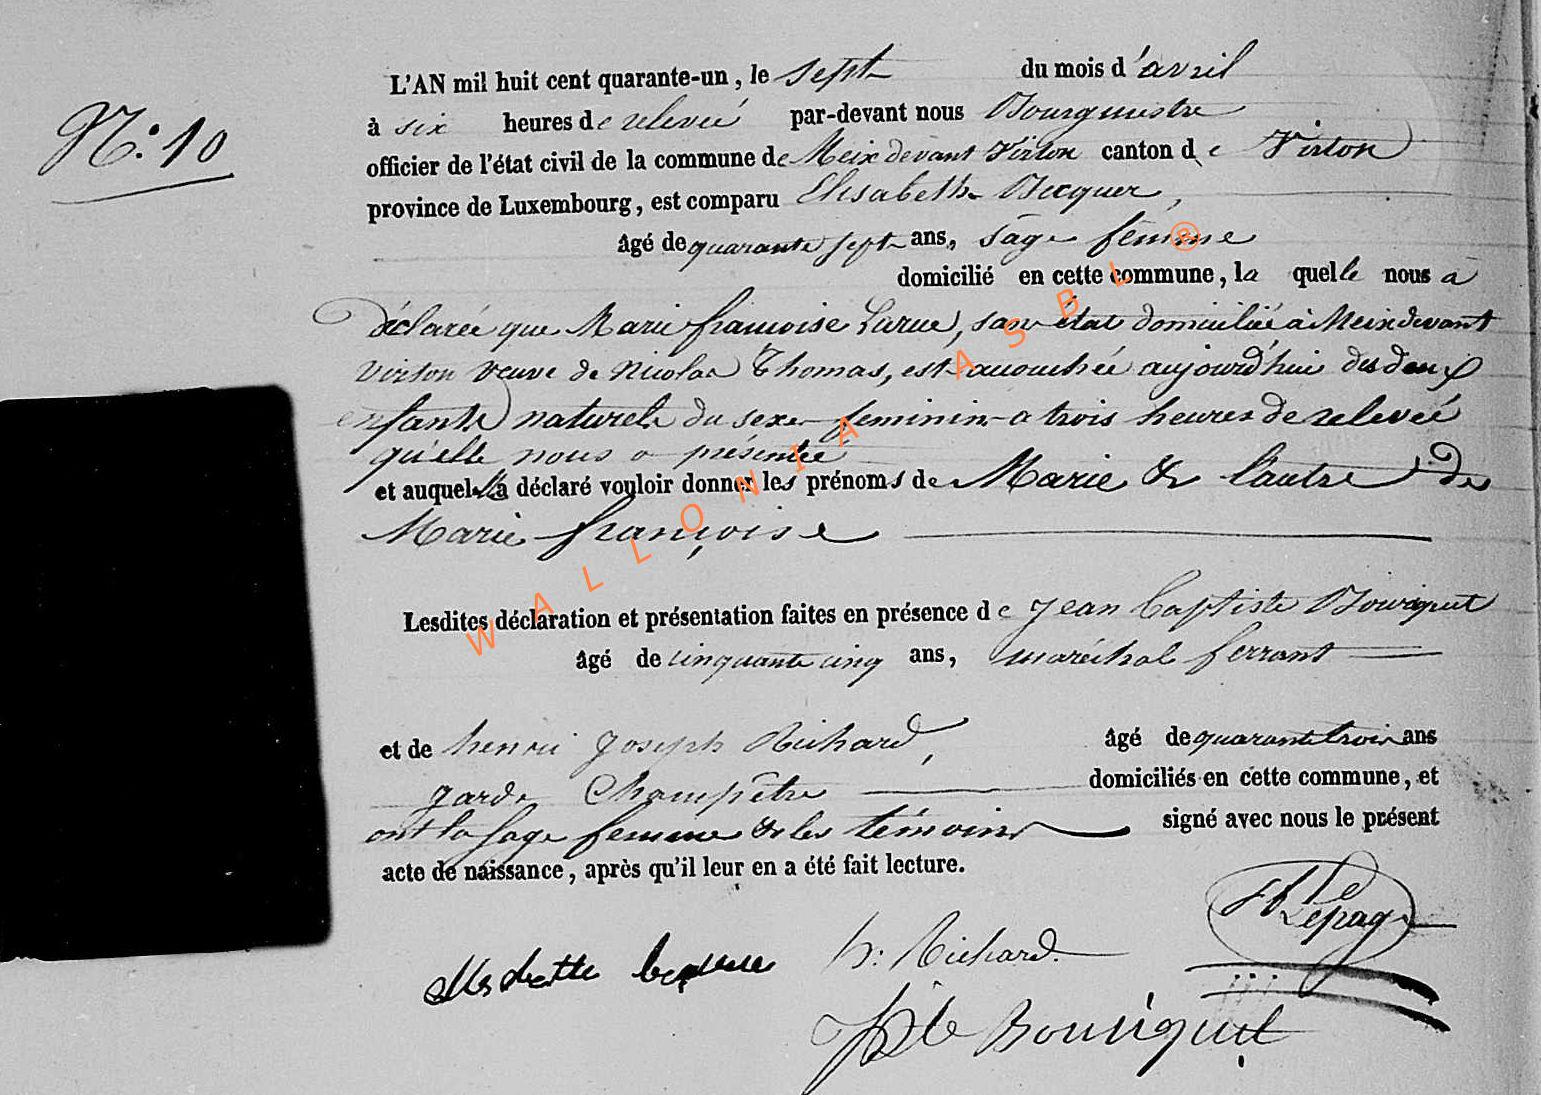 N.° 10
L'AN mil huit cent quarante-un, le sept du mois d'avril
à six heures de relevée par-devant nous Bourgmestre
officier de l'état civil de la commune de Meix devant Virton canton de Virton
province de Luxembourg, est comparu Elisabeth Becquer,
âgé de quarante sept ans, sage femme
domicilié en cette commune, la quelle nous a
déclarée que Marie françoise Larue, san état domiciliée à Meix devant
virton veuve de Nicolas Thomas, est accouchée aujourd'hui des deux
enfants naturels du sexe feminin a trois heures de relevée
qu'elle nous a présentée
et auquel elle a déclaré vouloir donner les prénoms de Marie & l'autre de
Marie françoise
Lesdites déclaration et présentation faites en présence de Jean Baptiste Bouviquet
âgé de cinquante cinq ans, maréchal ferrant
et de henri Joseph Richard, âgé de quarante trois ans
garde Champêtre domiciliés en cette commune, et
ont la sage femme & les témoins signé avec nous le présent
acte de naissance, après qu'il leur en a été fait lecture.
Lepage
h: Richard
JBte Bouviquet
WALLONIA ASBL ®